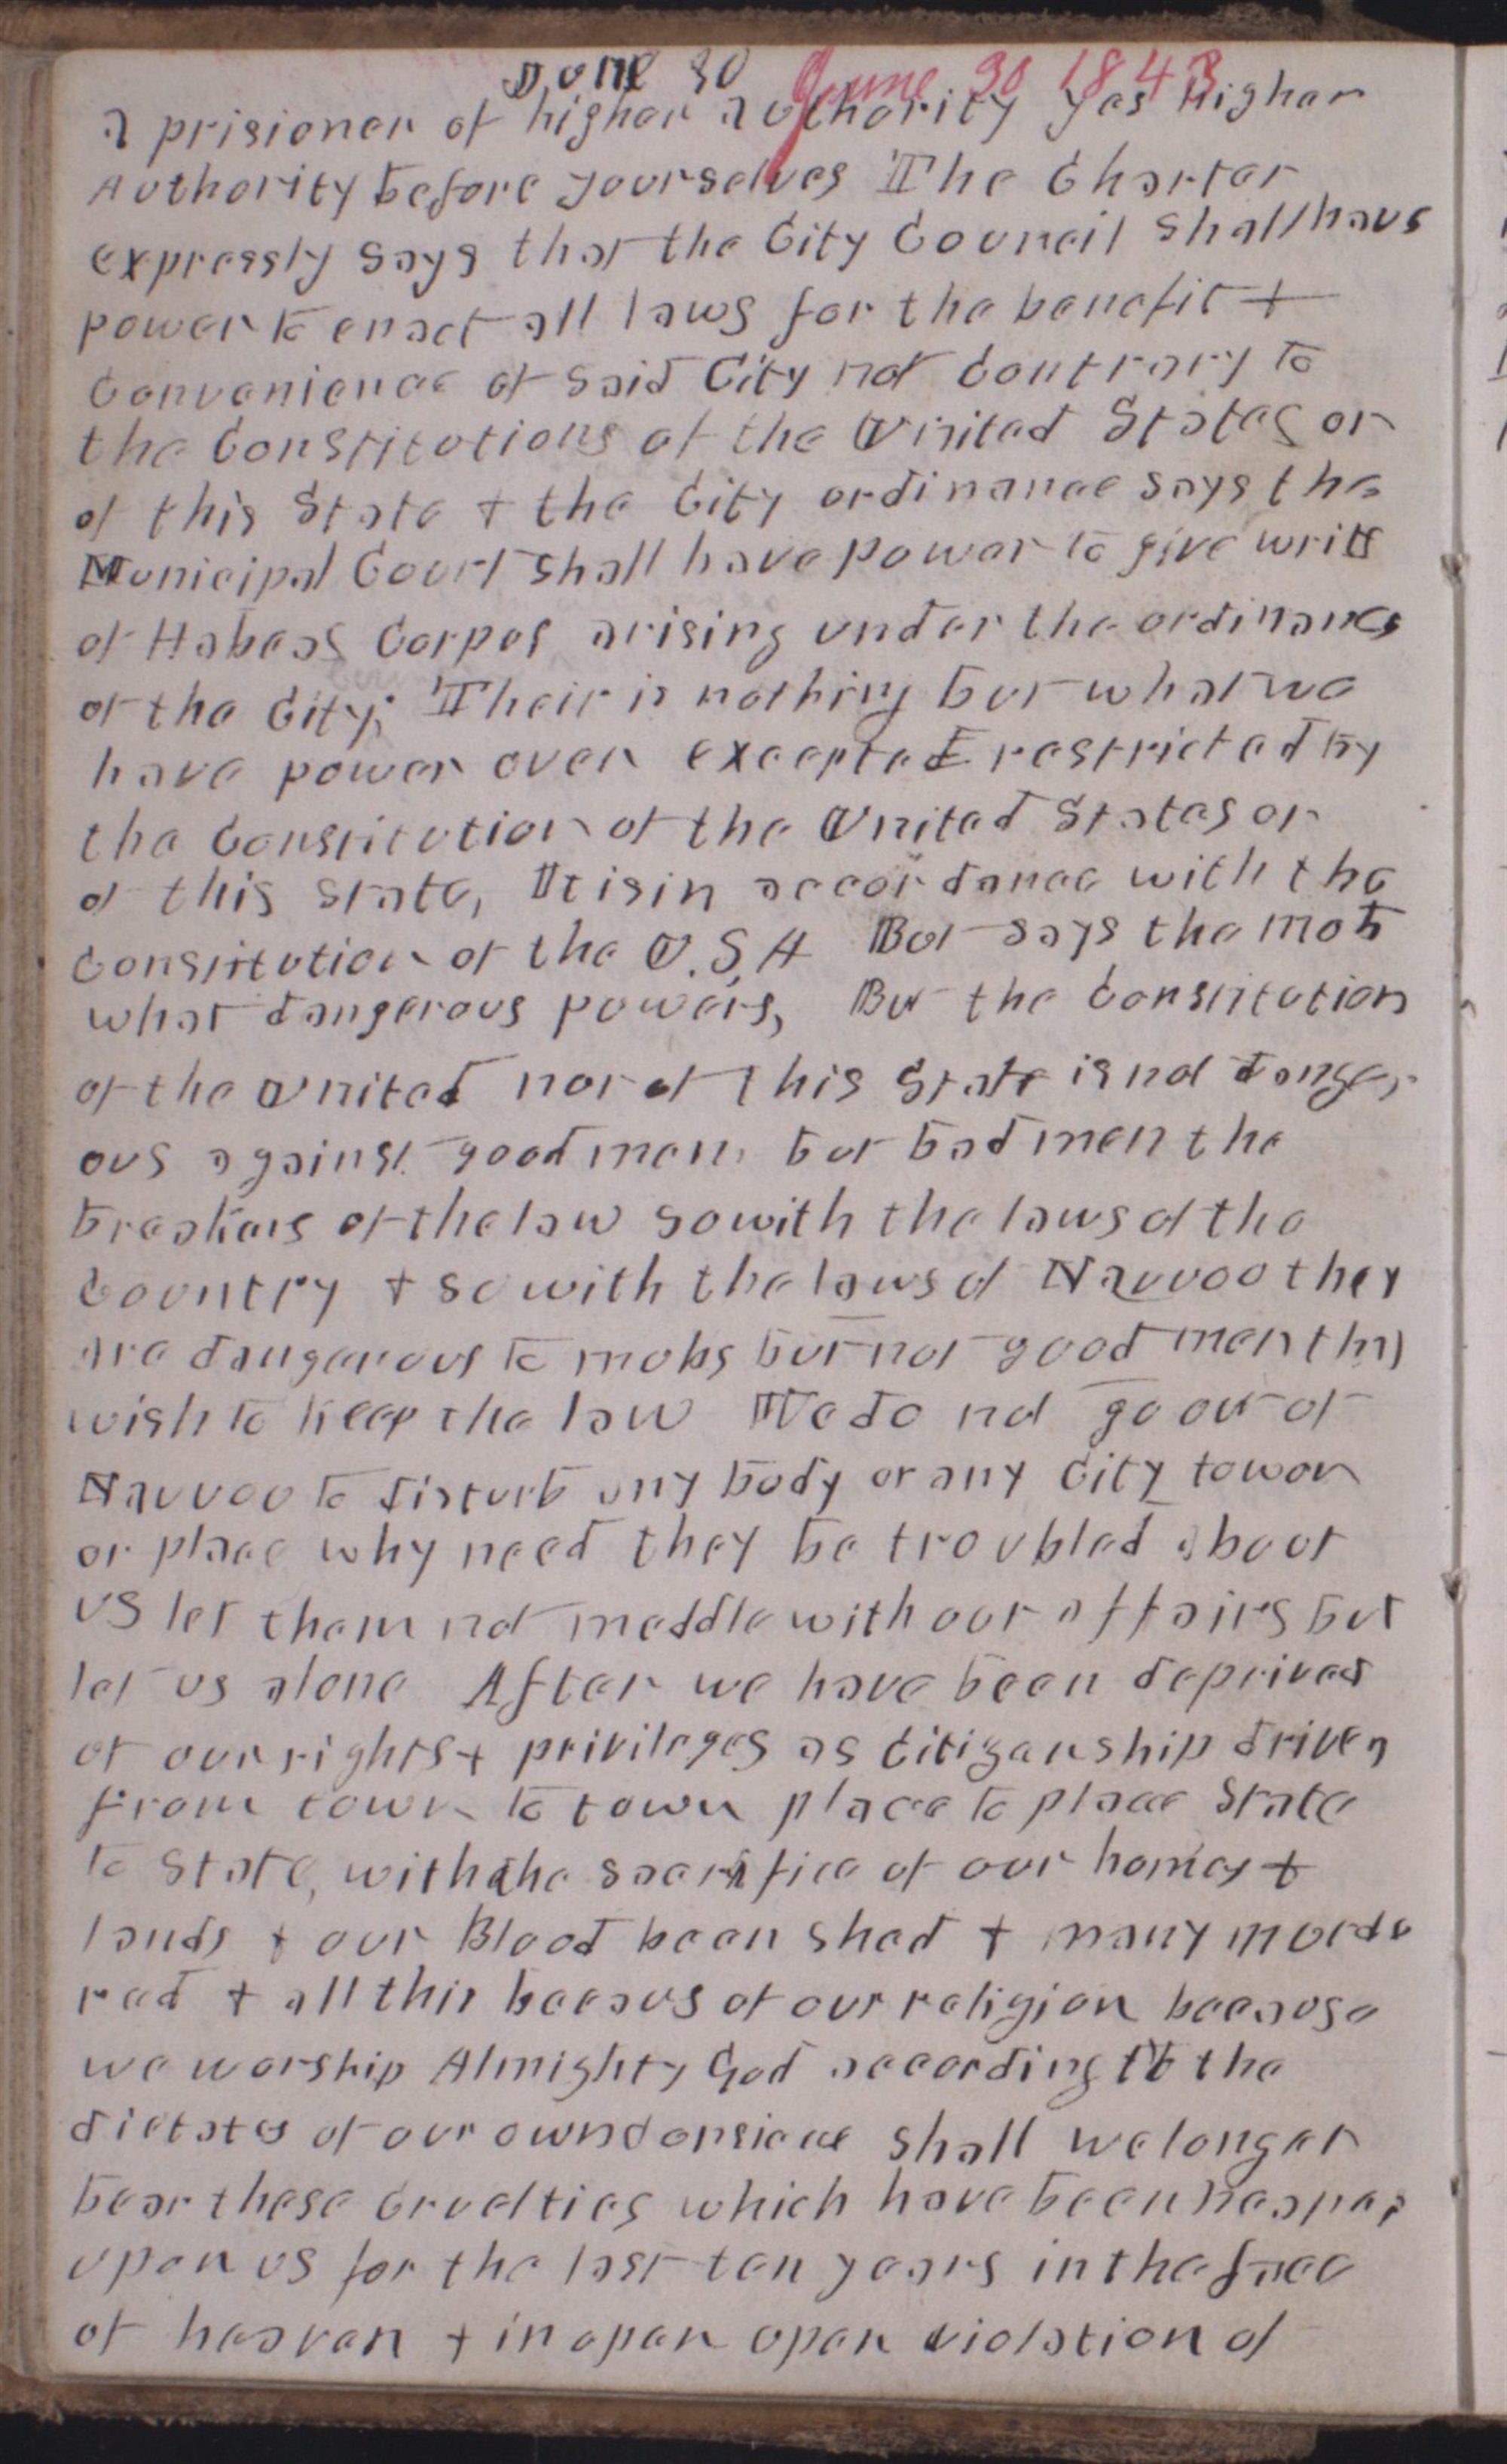 June 30 June 30 1843
a prisioner of higher authority yes higher
Authority before yourselves The Charter
expressly says that the City Council shall have
power to enact all laws for the benefit +
Convenience of said City not Contrary to
the Constitutions of the United States or
of this State + the City ordinance says the
Municipal Court shall have power to give writs
of Habeas Corpes arising under the ordinances
of the City; Their is nothing but what we
have power over excepted restricted by
the Constitution of the United States or
of this state, It is in accordance with the
Constitution of the U.S.A But says the mob
what dangerous powers, But the Constitution
of the United nor of this State is not danger
ous against good men, but bad men the
breakers of the law so with the laws of the
Country + so with the laws of Nauvoo they
are dangerous to mobs but not good men that
wish to keep the law We do not go out of
Nauvoo to disturb any body or any City towon
or place why need they be troubled about
us let them not meddle with our affairs but
let us alone After we have been deprived
of our rights + privileges as Citizenship driven
from town to town place to place State
to State, with the sacrifice of our homes +
lands + our Blood been shed + many murde
red + all this becaus of our religion because
we worship Almighty God according to the
dictates of our own Consience shall we longer
bear these Cruelties which have been heaped
upon us for the last ten years in the face
of heaven + in open open violation of